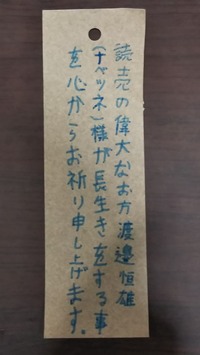 読売の偉大なお方渡邉恒雄
(ナベツネ)様が長生きをする事
を心からお祈り申し上げます。